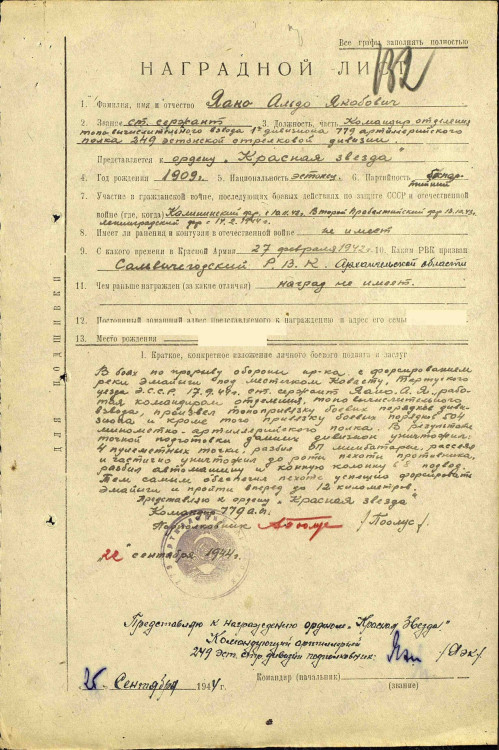 Все графы заполнять полностью
132
НАГРАДНОЙ ЛИСТ
1. Фамилия, имя и отчество Яано Альдо Якобович
2. Звание ст. сержант 3. Должность, часть Командир отделения
топо вычислительного взвода 1го дивизиона 779 артиллерийского
полка 249 эстонской стрелковой дивизии.
Представляется к ордену „Красная звезда“
4. Год рождения 1909г. 5. Национальность эстонец 6. Партийность беспар-
тийный
7. Участие в гражданской войне, последующих боевых действиях по защите СССР и отечественной
войне (где, когда) Калининский фр.
Ленинградский фр.
8. Имеет ли ранения и контузии в отечественной войне не имеет
9. С какого времени в Красной Армии 27 февраля 1942г. 10. Каким РВК призван
Сольвычегодский Р.В.К. Архангельской области
11. Чем ранее награжден (за какие отличия) наград не имеет.
12. Постоянный домашний адрес представляемого к награждению и адрес его семьи
13. Место рождения
ДЛЯ ПОДШИВКИ
I. Краткое, конкретное изложение личного боевого подвига или заслуг
В боях по прорыву обороны пр-ка, с форсированием
реки Эмайыги под местечком Тартуского
уезда Э.С.С.Р. 17.9.44г. ст. сержант Яано, А.Я. рабо-
тая командиром отделения, топо вычислительного
взвода, произвел топопривязку боевых порядков диви-
зиона и кроме того привязку боевых порядков
минометно-артиллерийского полка. В результате
точной подготовки данных дивизион уничтожил:
4 пулеметных точки, разбил минбатареи, рассеял
и частично уничтожил до роты пехоты противника,
разбил автомашину и конную колонну подвод.
Тем самым обеспечил пехоте успешно форсировать
Эмайыги и пройти вперед до 12 километров.
Представляю к ордену „Красная звезда“
Командир 779 а.п.
Подполковник /Поолус/
22 сентября 1944г.
Представляю к награждению орденом „Красная Звезда“
Командующий артиллерией
249 эст. стр. дивизии подполковник: /Яэк/
25 Сентября 1944 г.
Командир (начальник)
(звание)